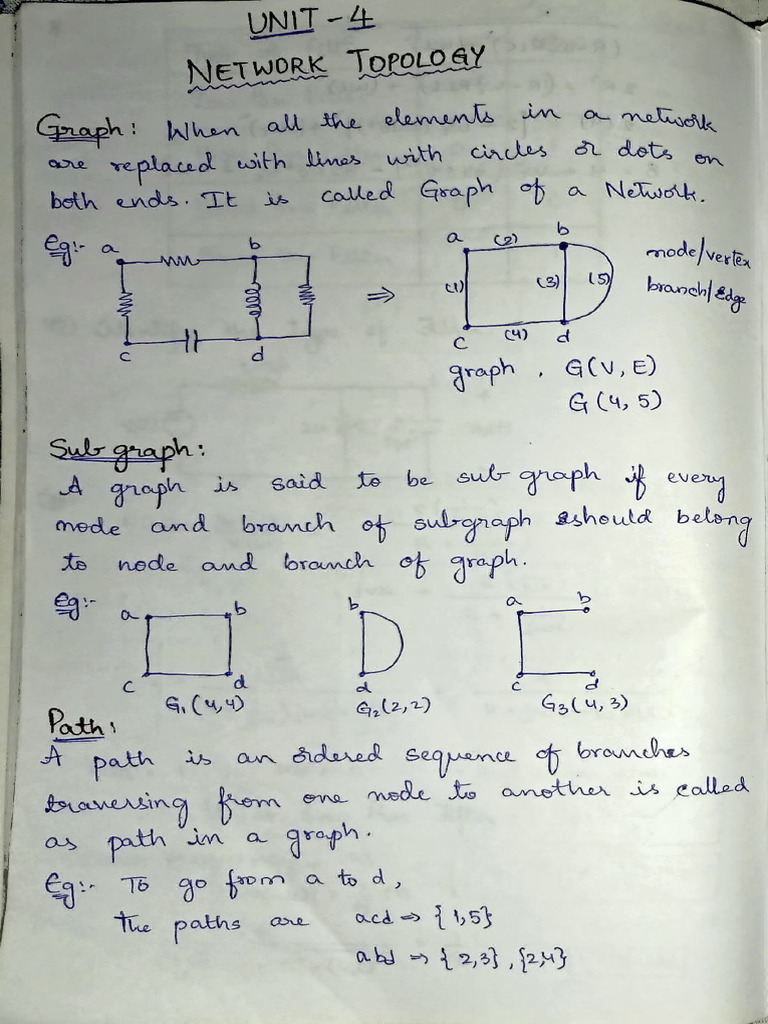 UNIT - 4
NETWORK TOPOLOGY
Graph: When all the elements in a network
are replaced with lines with circles or dots on
both ends. It is called Graph of a Network.
Eg:- a b a (2) b node/vertex
(1) (3) (5) branch/Edge
c d c (4) d
graph. G(V, E)
G(4, 5)
Sub graph:
A graph is said to be sub graph if every
node and branch of subgraph should belong
to node and branch of graph.
Eg:- a b b a b
c d d c d
G1(4,4) G2(2,2) G3(4,3)
Path:
A path is an ordered sequence of branches
traversing from one node to another is called
as path in a graph.
Eg:- To go from a to d,
the paths are acd ⇒ {1,5}
abd ⇒ {2,3}, {2,4}